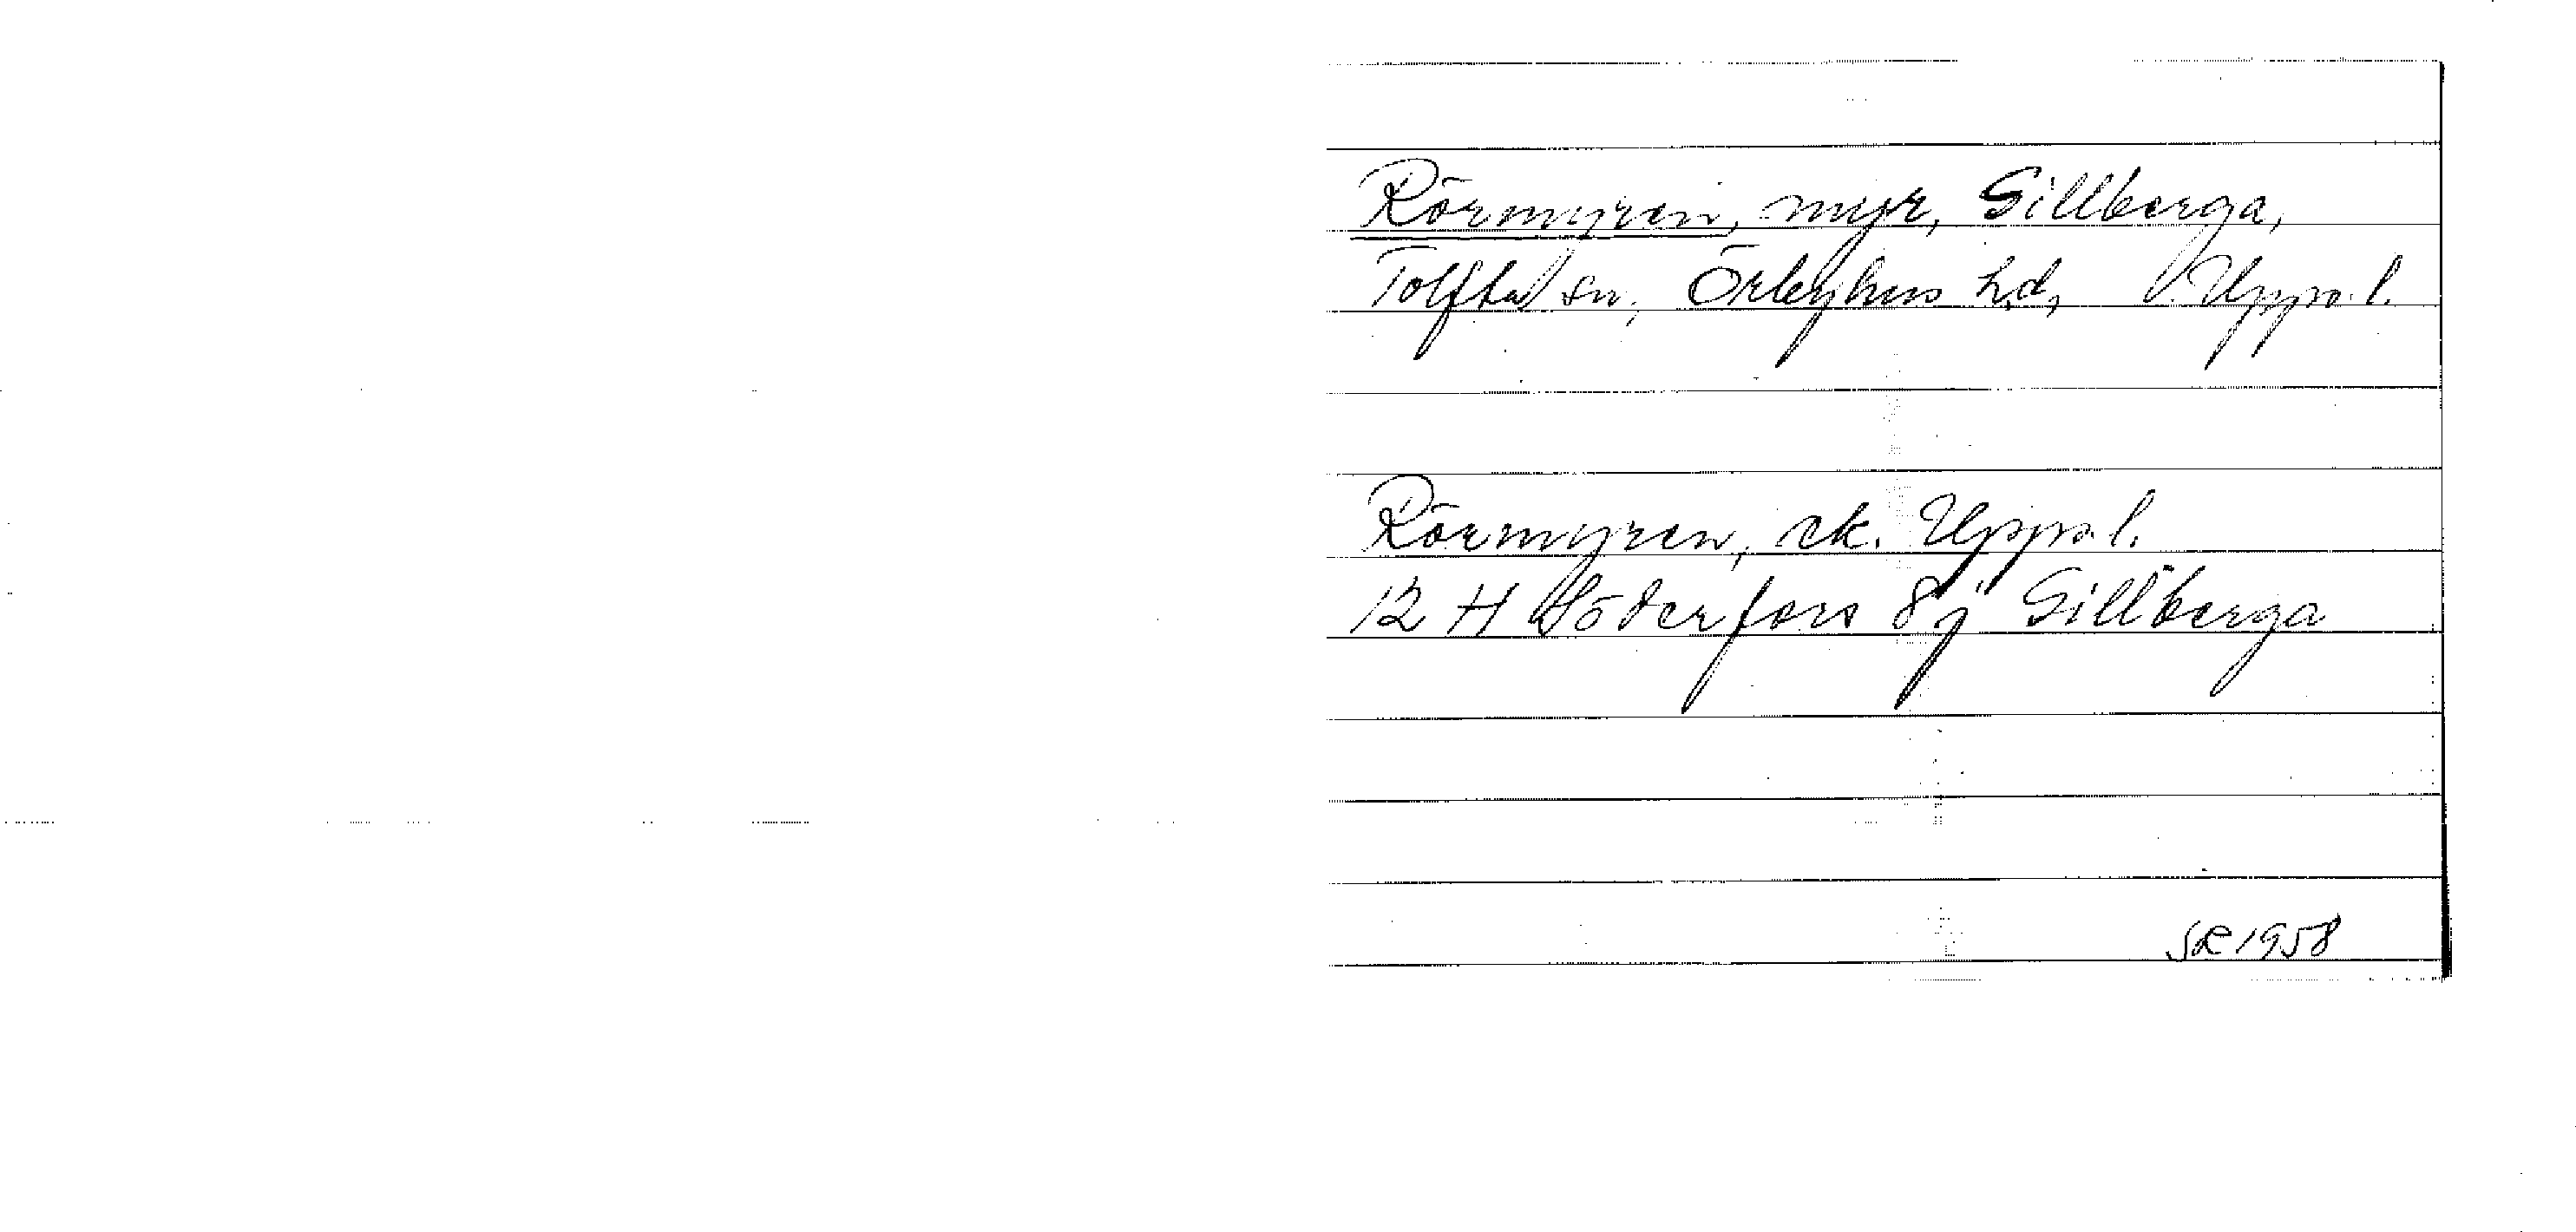 Rörmyren, myr, Gillberga,
Tolfta sn, Örbyhus hd, Upps. l.
Rörmyren, ek. Upps. l.
12 H Söderfors 8j Gillberga
SR 1958